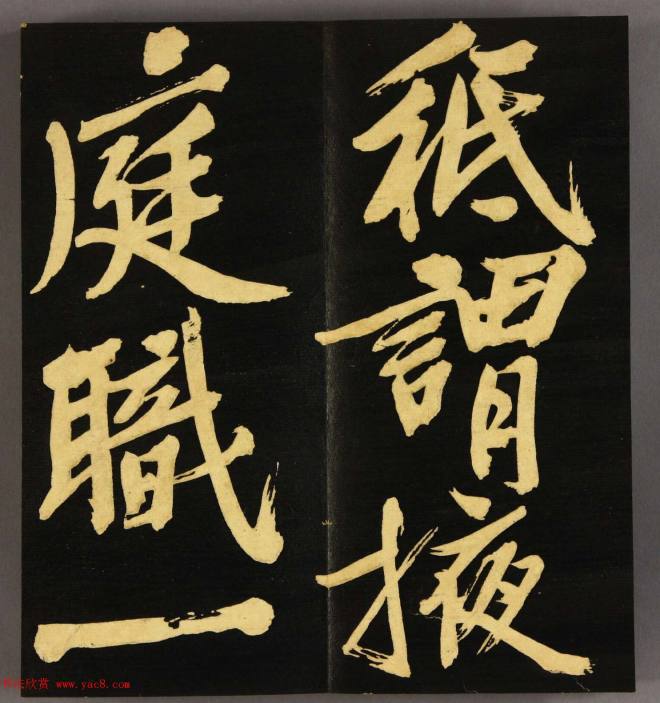 秪謂掖
庭職一
法欣赏 www.yac8.com